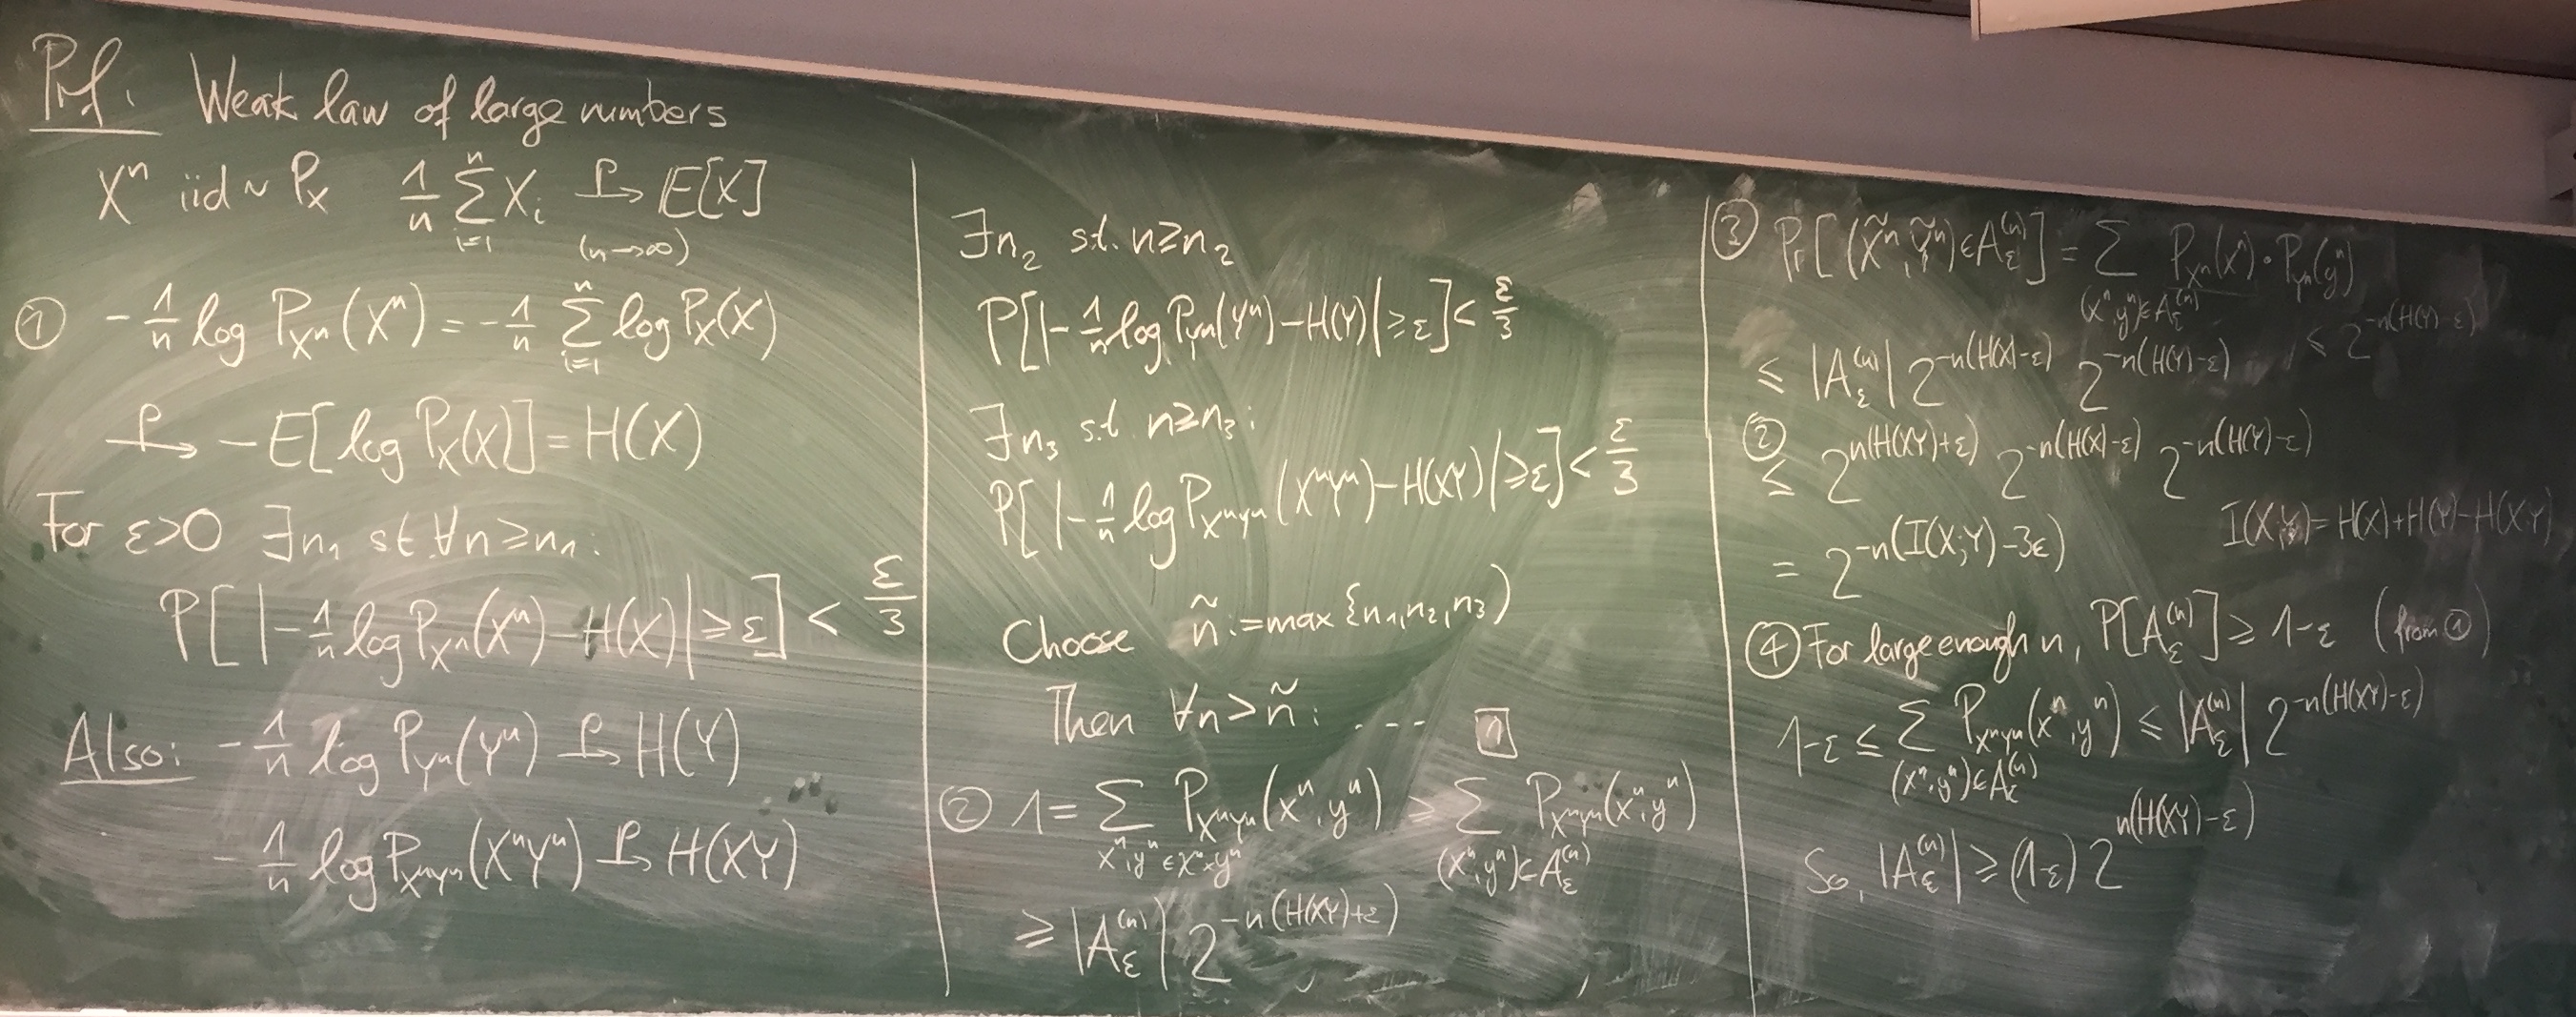 Prf. Weak law of large numbers
Xⁿ iid ~ P_X 1/n ∑_{i=1}^{n} X_i →^P E[X]
(n→∞)
① -1/n log P_{Xⁿ}(Xⁿ) = -1/n ∑_{i=1}^{n} log P_X(X)
→^P -E[log P_X(X)] = H(X)
For ε>0 ∃n₁ s.t. ∀n≥n₁:
P[|-1/n log P_{Xⁿ}(Xⁿ) - H(X)| ≥ ε] < ε/3
Also: -1/n log P_{Yⁿ}(Yⁿ) →^P H(Y)
-1/n log P_{XⁿYⁿ}(XⁿYⁿ) →^P H(XY)
∃n₂ s.t. n≥n₂
P[|-1/n log P_{Yⁿ}(Yⁿ) - H(Y)| ≥ ε] < ε/3
∃n₃ s.t. n≥n₃:
P[|-1/n log P_{XⁿYⁿ}(XⁿYⁿ) - H(XY)| ≥ ε] < ε/3
Choose ñ := max{n₁,n₂,n₃)
Then ∀n>ñ: ---- 1
② 1 = ∑_{xⁿ,yⁿ ∈ Xⁿ×Yⁿ} P_{XⁿYⁿ}(xⁿ,yⁿ) ≥ ∑_{(xⁿ,yⁿ)∈A_ε^{(n)}} P_{XⁿYⁿ}(xⁿ,yⁿ)
≥ |A_ε^{(n)}| 2^{-n(H(XY)+ε)}
③ Pr[(X̃ⁿ,Ỹⁿ)∈A_ε^{(n)}] = ∑_{(xⁿ,yⁿ)∈A_ε^{(n)}} P_{Xⁿ}(xⁿ)·P_{Yⁿ}(yⁿ)
≤ 2^{-n(H(Y)-ε)}
≤ |A_ε^{(n)}| 2^{-n(H(X)-ε)} 2^{-n(H(Y)-ε)}
②
≤ 2^{n(H(XY)+ε)} 2^{-n(H(X)-ε)} 2^{-n(H(Y)-ε)}
I(X;Y) = H(X)+H(Y)-H(XY)
= 2^{-n(I(X;Y)-3ε)}
④ For large enough n, P[A_ε^{(n)}] ≥ 1-ε (from ①)
1-ε ≤ ∑_{(xⁿ,yⁿ)∈A_ε^{(n)}} P_{XⁿYⁿ}(xⁿ,yⁿ) ≤ |A_ε^{(n)}| 2^{-n(H(XY)-ε)}
So, |A_ε^{(n)}| ≥ (1-ε) 2^{n(H(XY)-ε)}